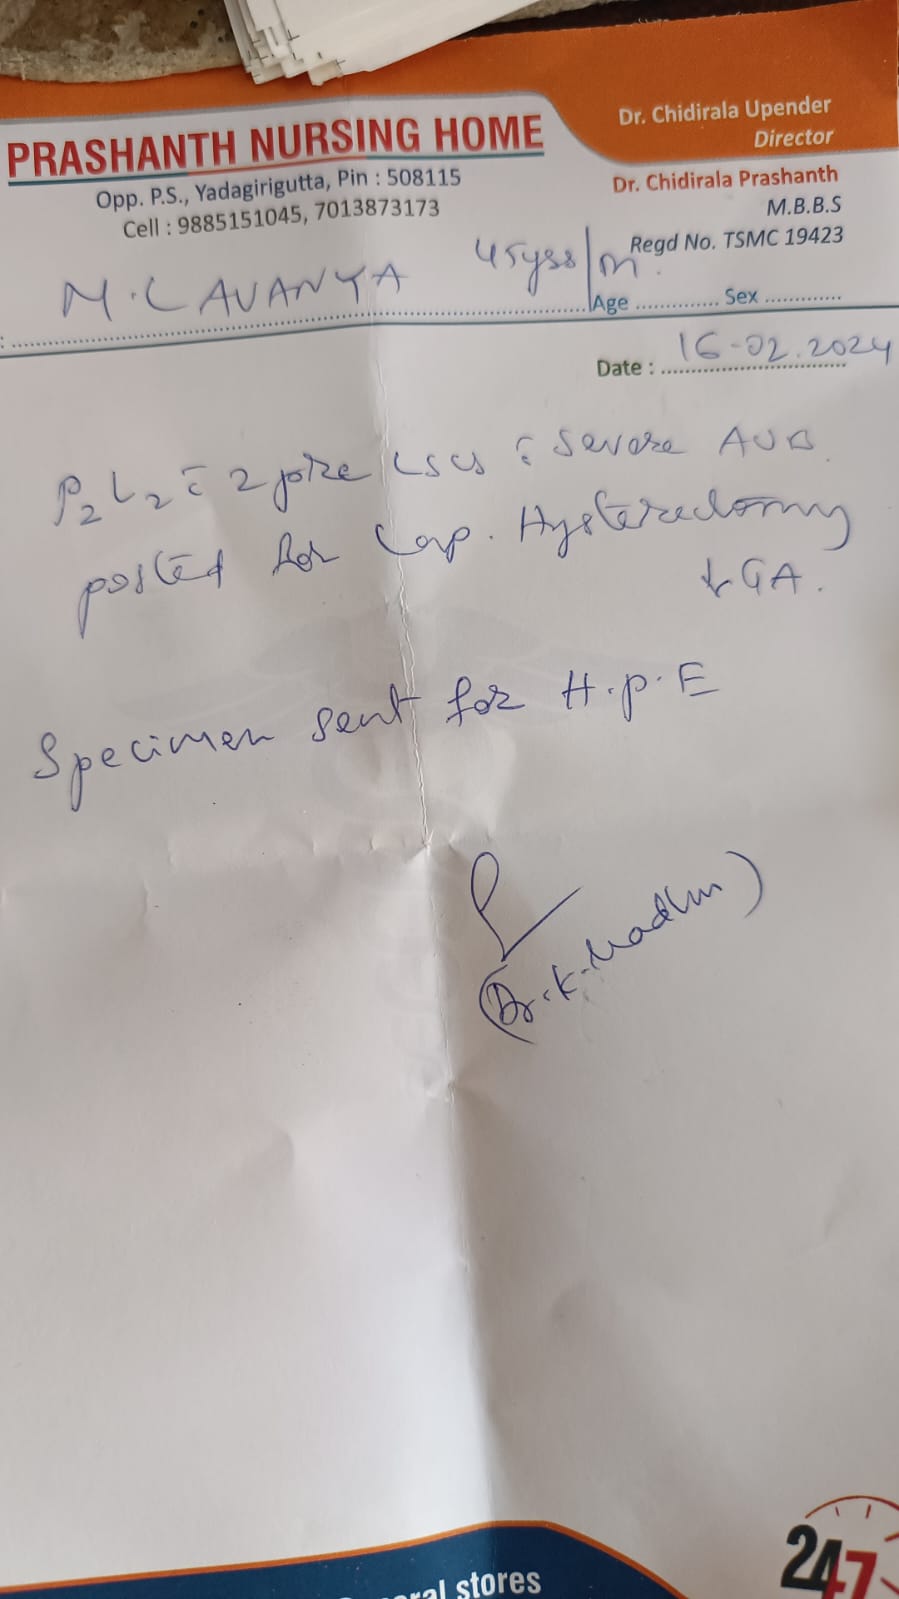 PRASHANTH NURSING HOME
Opp. P.S., Yadagirigutta, Pin : 508115
Cell : 9885151045, 7013873173
Dr. Chidirala Upender
Director
Dr. Chidirala Prashanth
M.B.B.S
Regd No. TSMC 19423
M. LAVANYA 45yrs/m.
Age ............. Sex .............
Date : 16-02.2024
P2L2 c̄ 2 pre LSCS c̄ Severe AUB
posted for Lap. Hysterectomy
GA.
Specimen sent for H.P.E
(Dr. K. Madhu)
stores
247